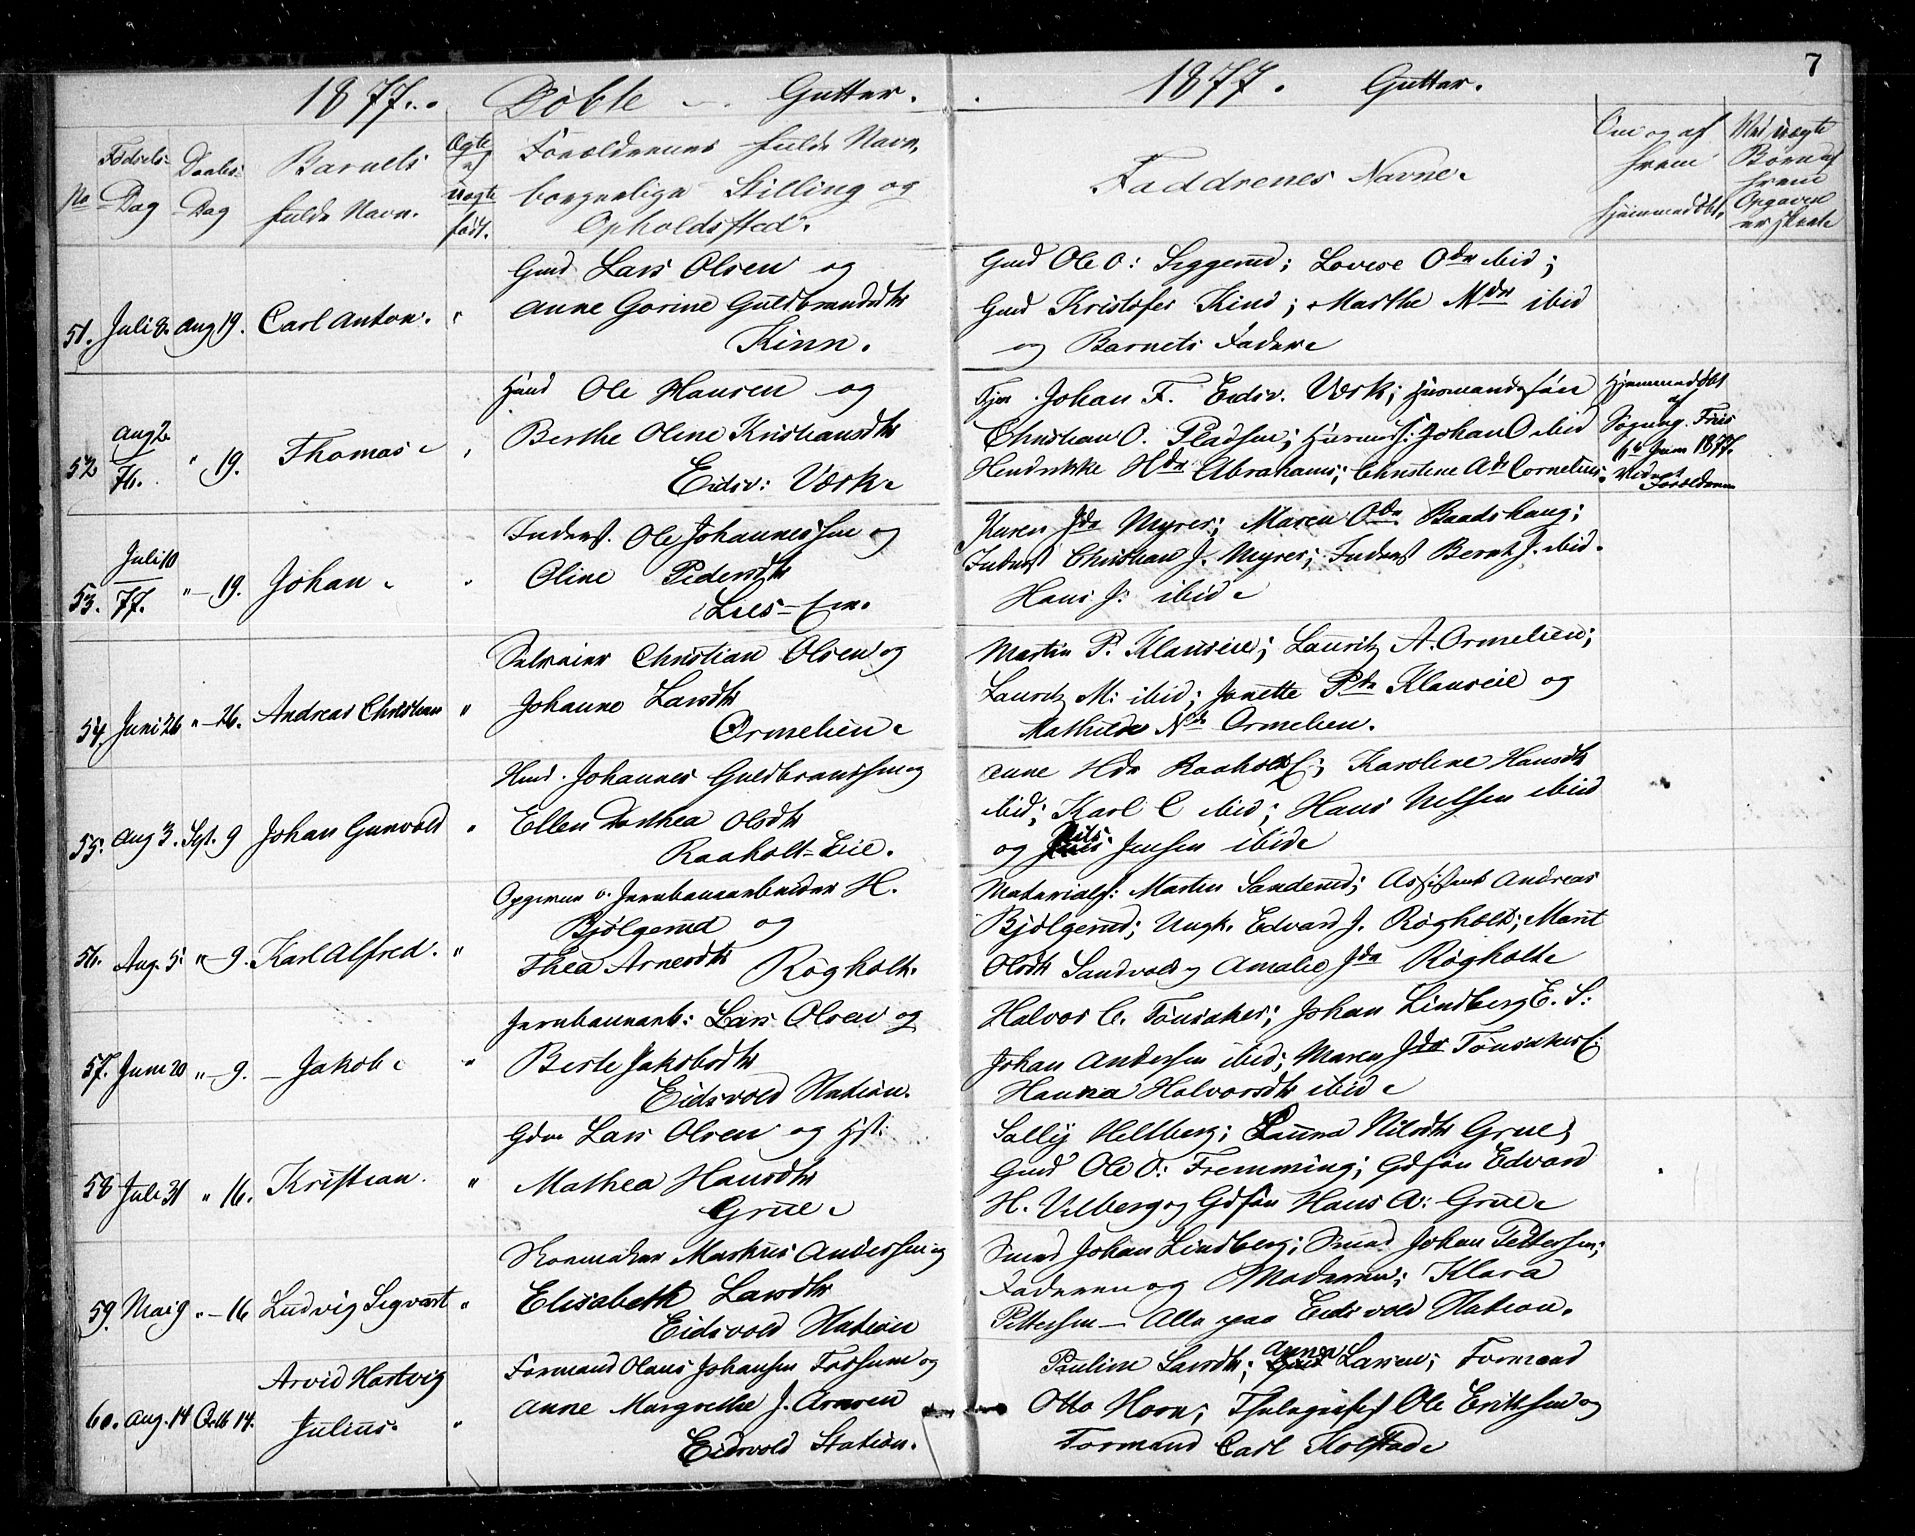 7
1877. Døbte Gutter.
1877. Gutter.
No
Fødsels-
Dag
Daabs-
Dag
Barnets
fulde Navn.
Ægte
el
uægte
født.
Forældrenes fulde Navn,
borgerlige Stilling og
Opholdssted.
Faddrenes Navne.
Om og af
hvem
hjemmedøbt.
Ved uægte
Børn af
hvem
Opgaven
er skeet
51. Juli 8. Aug 19. Carl Anton.
Gmd Lars Olsen og
Anne Gorine Guldbrandsdtr
Kinn.
Gmd Ole O: Seggerud; Lovise Odtr ibid;
Gmd Kristofer Kind; Marthe Mdtr ibid
og Barnets Fader
52 Aug 2
76. " 19. Thomas
Hmd Ole Hansen og
Berthe Oline Kristiansdtr
Eidsv: Værk
Johan F. Eidsv. Værk; Husmandssøn
Christian O. Pladsen; Husms: Johan O ibid
Hendrikke Hdtr Abrahams; Christine Adtr Cornelius.
Hjemmedøbt
af
Sogneng. Friis
6te Juni 1877.
Vidnet
Forældrene
53. Juli 10
77. " 19. Johan
Inderst. Ole Johannessen og
Oline Pedersdtr
Lies-Ein.
Karen Jdtr Myrer; Maren Odtr Baadshaug;
Inderst Christian J. Myrer; Inderst Bernt J. ibid.
Hans J: ibid
54. Juni 26 " 26. Andreas Christian "
Selveier Christian Olsen og
Johanne Larsdtr
Ormelien
Martin P. Klauseie; Lauritz A. Ormelien;
Lauritz M: ibid; Jonette Pdtr Klauseie og
Mathilde Ndtr Ormelien.
55. Aug 3. Sept. 9 Johan Gunvald "
Hmd. Johannes Guldbrandsen og
Ellen Dorthea Olsdtr
Raaholt-Eie.
Anne Hdtr Raaholt E; Karoline Hansdtr
ibid; Karl C ibid; Hans Nilsen ibid
og Nils Jensen ibid
56. Aug. 5. " 9. Karl Alfred. "
Opgaven o. Jernbanearbeider H.
Bjølgerud og
Thea Arnesdtr Røgholt.
Materialf: Martin Sanderud; Assistent Andreas
Bjølgerud; Ungk. Edvard J. Røgholt; Marit
Olsdtr Sandvold og Amalie Jdtr Røgholt
57. Juni 20 " 9. Jakob "
Jernbanearb: Lars Olsen og
Berte Jakobsdtr
Eidsvold Station.
Halvor C. Tønsaker; Johan Lindberg E. S:
Johan Andersen ibid; Maren Jdtr Tønsaker E;
Hanna Halvorsdtr ibid
58 Juli 31 " 16. Kristian. "
Gdm Lars Olsen og Hst:
Mathea Hansdtr
Grue
Sally Hellberg; Laura Nilsdtr Grue;
Gmd Ole O: Fremming; Gdsøn Edvard
H. Vilberg og Gdsøn Hans A: Grue
59. Mai 9 " 16 Ludvig Sigvart "
Skomaker Markus Andersen og
Elisabeth Larsdtr
Eidsvold Station
Smed Johan Lindberg; Smed Johan Pettersen;
Faderen og Moderen; Klara
Pettersen — Alle paa Eidsvold Station.
60. Aug. 14 Octb 14. Arvid Hartvig
Julius.
Formand Olaus Johansen Fossum og
Anne Margrethe J. Arnesen
Eidsvold Station.
Pauline Larsdtr; Anna Larsen; Formand
Otto Horn; Thelegrafist Ole Eriksen og
Formand Carl Kolstad